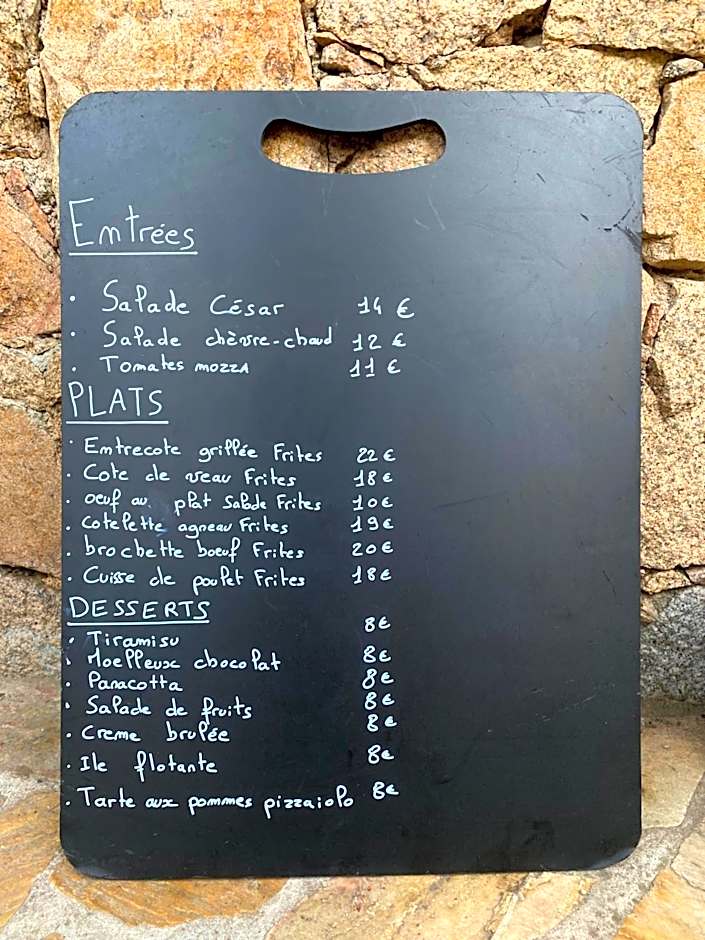 Entrées
• Salade César 14 €
• Salade chèvre-chaud 12 €
• Tomates mozza 11 €
PLATS
• Entrecote grillée Frites 22 €
• Cote de veau Frites 18 €
• oeuf au plat Salade Frites 10 €
• Cotelette agneau Frites 19 €
• brochette boeuf Frites 20 €
• Cuisse de poulet Frites 18 €
DESSERTS
• Tiramisu 8 €
• Moelleux chocolat 8 €
• Panacotta 8 €
• Salade de fruits 8 €
• Creme brulée 8 €
• Ile flotante 8 €
• Tarte aux pommes pizzaiolo 8 €